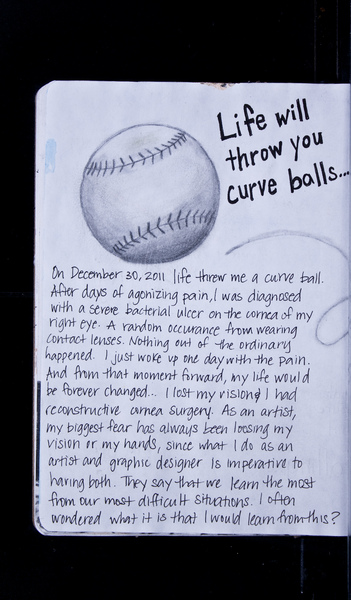 Life will
throw you
curve balls...
On December 30, 2011 life threw me a curve ball.
After days of agonizing pain, I was diagnosed
with a severe bacterial ulcer on the cornea of my
right eye. A random occurance from wearing
contact lenses. Nothing out of the ordinary
happened. I just woke up one day with the pain.
And from that moment forward, my life would
be forever changed... I lost my vision & I had
reconstructive cornea surgery. As an artist,
my biggest fear has always been loosing my
vision or my hands, since what I do as an
artist and graphic designer is imperative to
having both. They say that we learn the most
from our most difficult situations. I often
wondered what it is that I would learn from this?